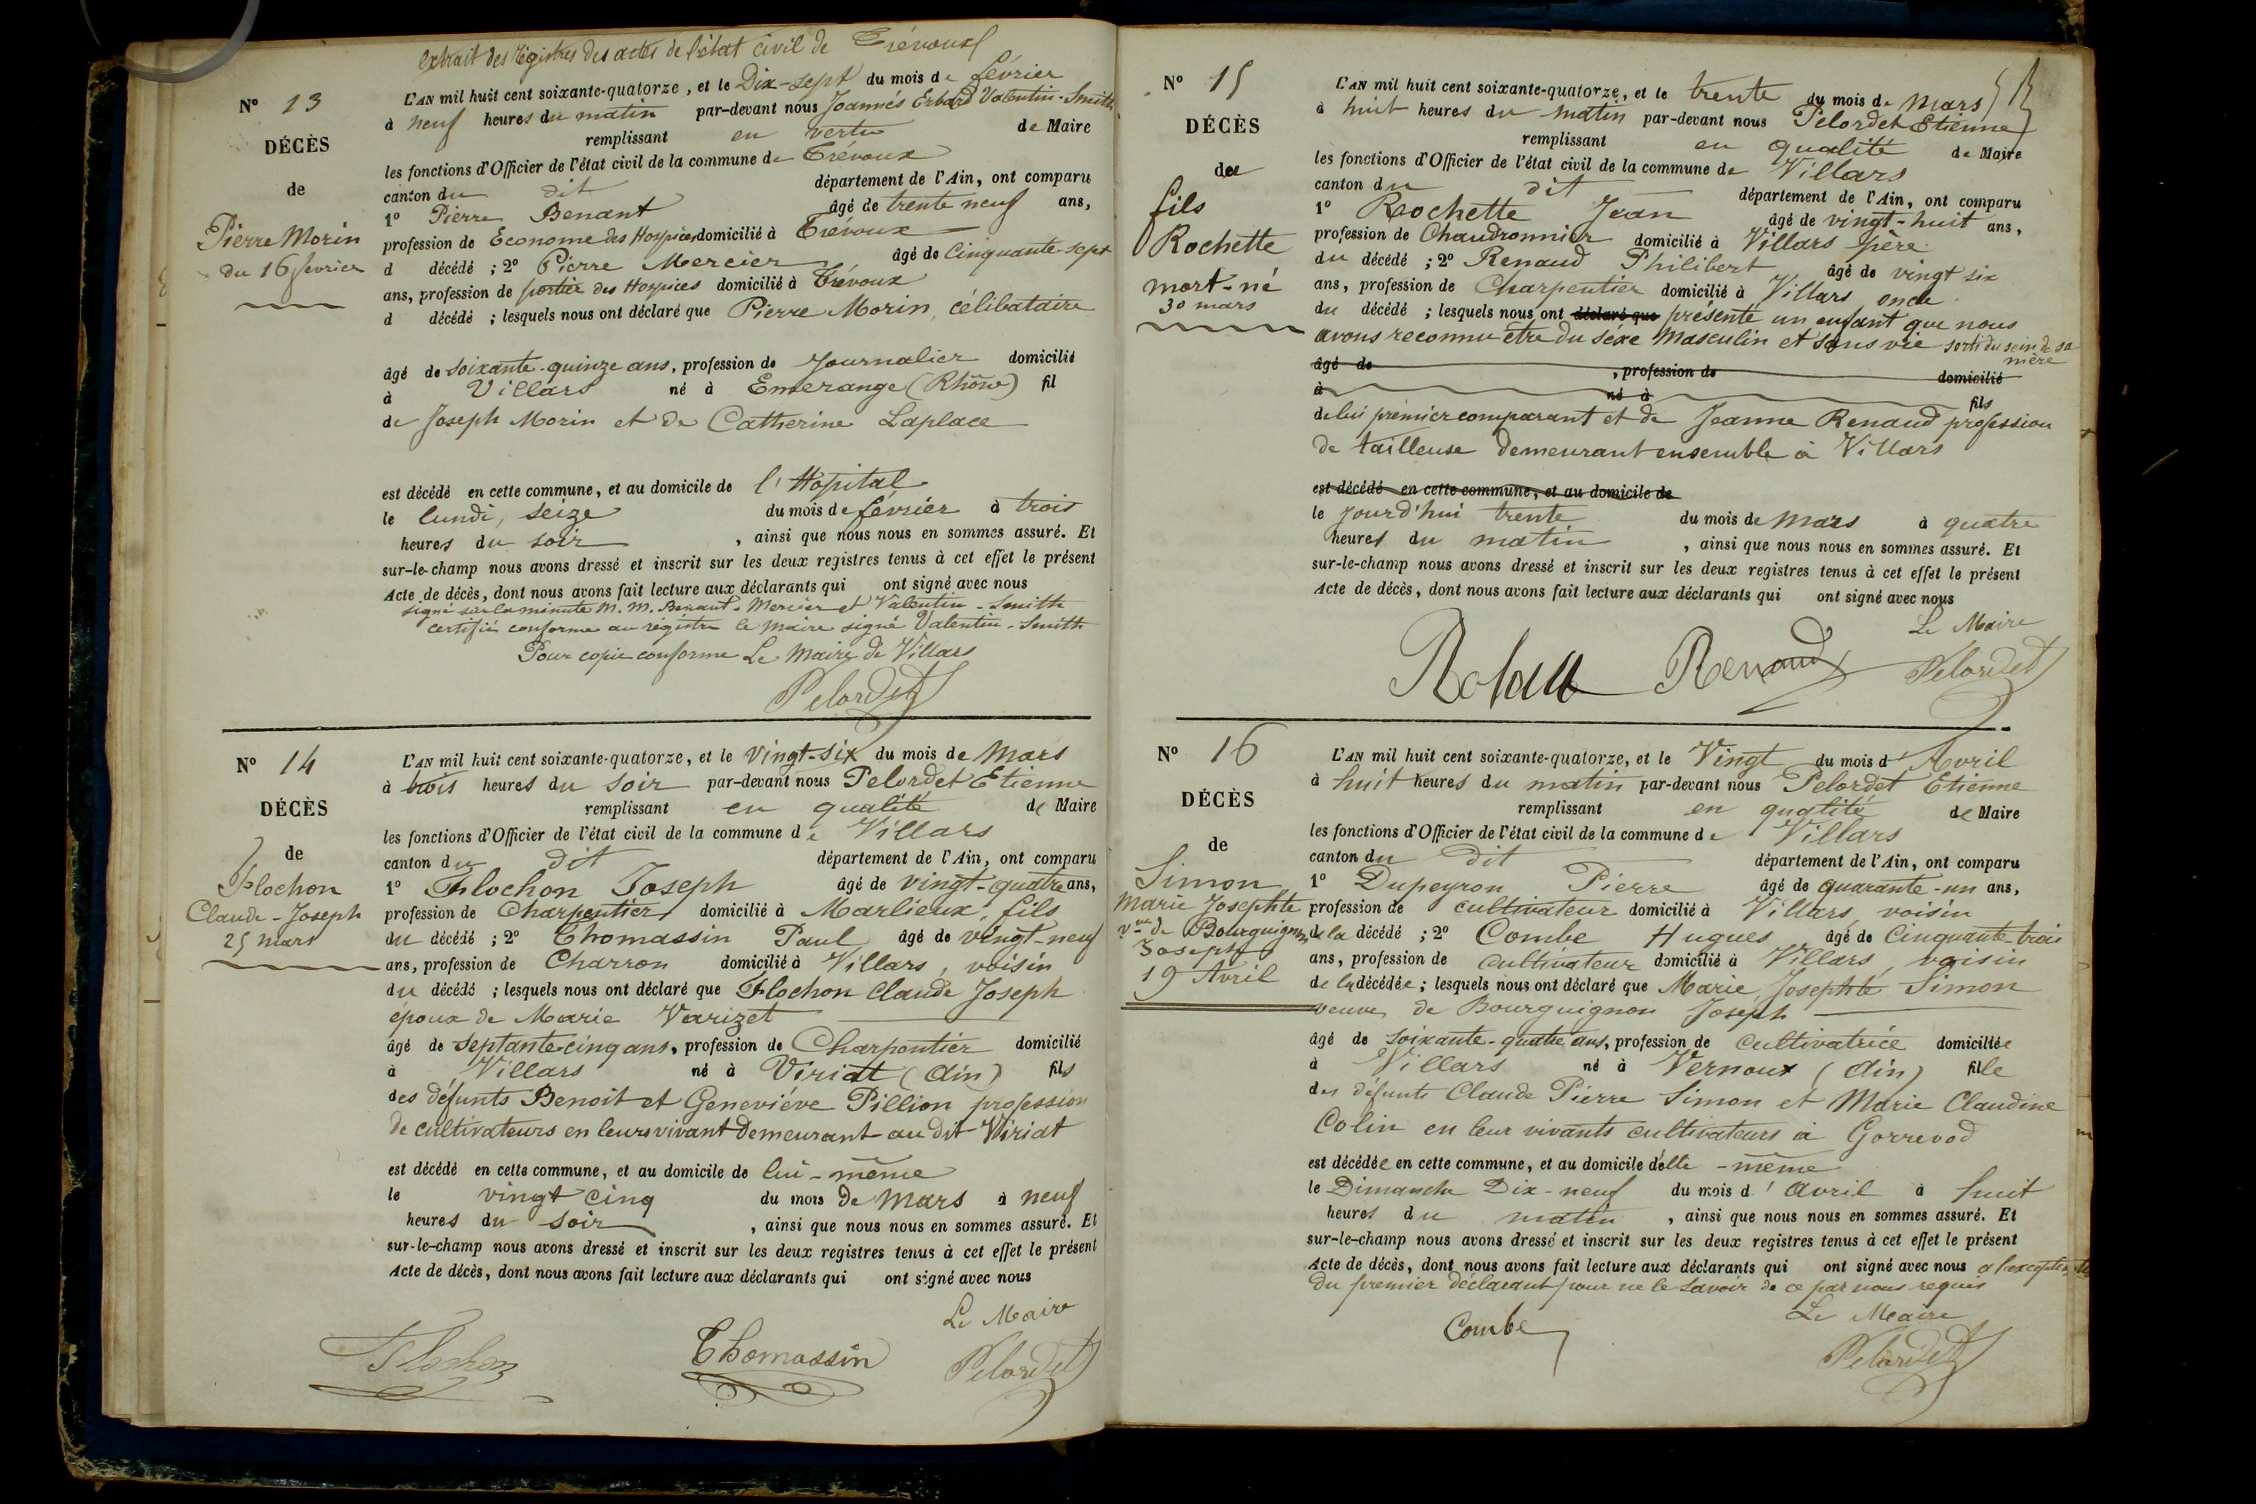 Extrait des Régistres des actes de l'état civil de Trévoux
N° 13
DÉCÈS
de
Pierre Morin
du 16 février
L'AN mil huit cent soixante-quatorze, et le Dix-sept du mois de février
à neuf heures du matin par-devant nous Joannés Erhard Valentin-Smith
remplissant en vertu de Maire
les fonctions d'Officier de l'état civil de la commune de Trévoux
canton du dit département de l'Ain, ont comparu
1° Pierre Benant âgé de trente neuf ans,
profession de Econome des Hospices domicilié à Trévoux
d décédé ; 2° Pierre Mercier âgé de Cinquante-sept
ans, profession de portier des Hospices domicilié à Trévoux
d décédé ; lesquels nous ont déclaré que Pierre Morin, célibataire
âgé de soixante-quinze ans, profession de Journalier domicilié
à Villars né à Emerange (Rhône) fil
de Joseph Morin et de Catherine Laplace
est décédé en cette commune, et au domicile de l'Hôpital
le lundi, seize du mois de février à trois
heures du soir, ainsi que nous nous en sommes assuré. Et
sur-le-champ nous avons dressé et inscrit sur les deux registres tenus à cet effet le présent
Acte de décès, dont nous avons fait lecture aux déclarants qui ont signé avec nous
signé sur la minute M. M. Benant, Mercier et Valentin-Smith
certifié conforme au régistre le Maire signé Valentin-Smith
Pour copie conforme Le Maire de Villars
Pelordet
N° 14
DÉCÈS
de
Flochon
Claude-Joseph
25 mars
L'AN mil huit cent soixante-quatorze, et le Vingt-six du mois de Mars
à trois heures du soir par-devant nous Pelordet Etienne
remplissant en qualité de Maire
les fonctions d'Officier de l'état civil de la commune de Villars
canton du dit département de l'Ain, ont comparu
1° Flochon Joseph âgé de vingt-quatre ans,
profession de Charpentier domicilié à Marlieux, fils
du décédé ; 2° Thomassin Paul âgé de vingt-neuf
ans, profession de Charron domicilié à Villars, voisin
du décédé ; lesquels nous ont déclaré que Flochon Claude Joseph
époux de Marie Varizet
âgé de septante cinq ans, profession de Charpentier domicilié
à Villars né à Viriat (Ain) fils
des défunts Benoit et Geneviéve Pillion profession
de cultivateurs en leurs vivant demeurant au dit Viriat
est décédé en cette commune, et au domicile de lui-même
le vingt cinq du mois de Mars à neuf
heures du soir, ainsi que nous nous en sommes assuré. Et
sur-le-champ nous avons dressé et inscrit sur les deux registres tenus à cet effet le présent
Acte de décès, dont nous avons fait lecture aux déclarants qui ont signé avec nous
Le Maire
Flochon Thomassin Pelordet
N° 15
DÉCÈS
de
fils
Rochette
mort-né
30 mars
L'AN mil huit cent soixante-quatorze, et le trente du mois de Mars
à huit heures du matin par-devant nous Pelordet Etienne
remplissant en qualité de Maire
les fonctions d'Officier de l'état civil de la commune de Villars
canton du dit département de l'Ain, ont comparu
1° Rochette Jean âgé de vingt-huit ans,
profession de Chaudronnier domicilié à Villars père
du décédé ; 2° Renaud Philibert âgé de vingt six
ans, profession de Charpentier domicilié à Villars oncle
du décédé ; lesquels nous ont déclaré que présenté un enfant que nous
avons reconnu être du séxe Masculin et sans vie sorti du sein de sa
mère
âgé de , profession de domicilié
à né à fils
de lui prémier comparant et de Jeanne Renaud profession
de tailleuse demeurant ensemble à Villars
est décédé en cette commune, et au domicile de
le jourd'hui trente du mois de Mars à quatre
heures du matin, ainsi que nous nous en sommes assuré. Et
sur-le-champ nous avons dressé et inscrit sur les deux registres tenus à cet effet le présent
Acte de décès, dont nous avons fait lecture aux déclarants qui ont signé avec nous
Le Maire
Renaud Pelordet
N° 16
DÉCÈS
de
Simon
Marie Josephte
vve de Bourguignon
Joseph
19 Avril
L'AN mil huit cent soixante-quatorze, et le Vingt du mois d'Avril
à huit heures du matin par-devant nous Pelordet Etienne
remplissant en qualité de Maire
les fonctions d'Officier de l'état civil de la commune de Villars
canton du dit département de l'Ain, ont comparu
1° Dupeyron Pierre âgé de quarante-un ans,
profession de cultivateur domicilié à Villars, voisin
de la décédé ; 2° Combe Hugues âgé de Cinquante-trois
ans, profession de cultivateur domicilié à Villars, voisin
de la décédée ; lesquels nous ont déclaré que Marie Josephte Simon
veuve de Bourguignon Joseph
âgé de soixante-quatre ans, profession de cultivatrice domiciliée
à Villars né à Vernoux (Ain) fille
des défunts Claude Pierre Simon et Marie Claudine
Colin en leur vivants cultivateurs à Gorrevod
est décédée en cette commune, et au domicile d'elle-même
le Dimanche Dix-neuf du mois d'Avril à huit
heures du matin, ainsi que nous nous en sommes assuré. Et
sur-le-champ nous avons dressé et inscrit sur les deux registres tenus à cet effet le présent
Acte de décès, dont nous avons fait lecture aux déclarants qui ont signé avec nous à l'exception
du premier déclarant pour ne le savoir de ce par nous requis
Le Maire
Combe Pelordet